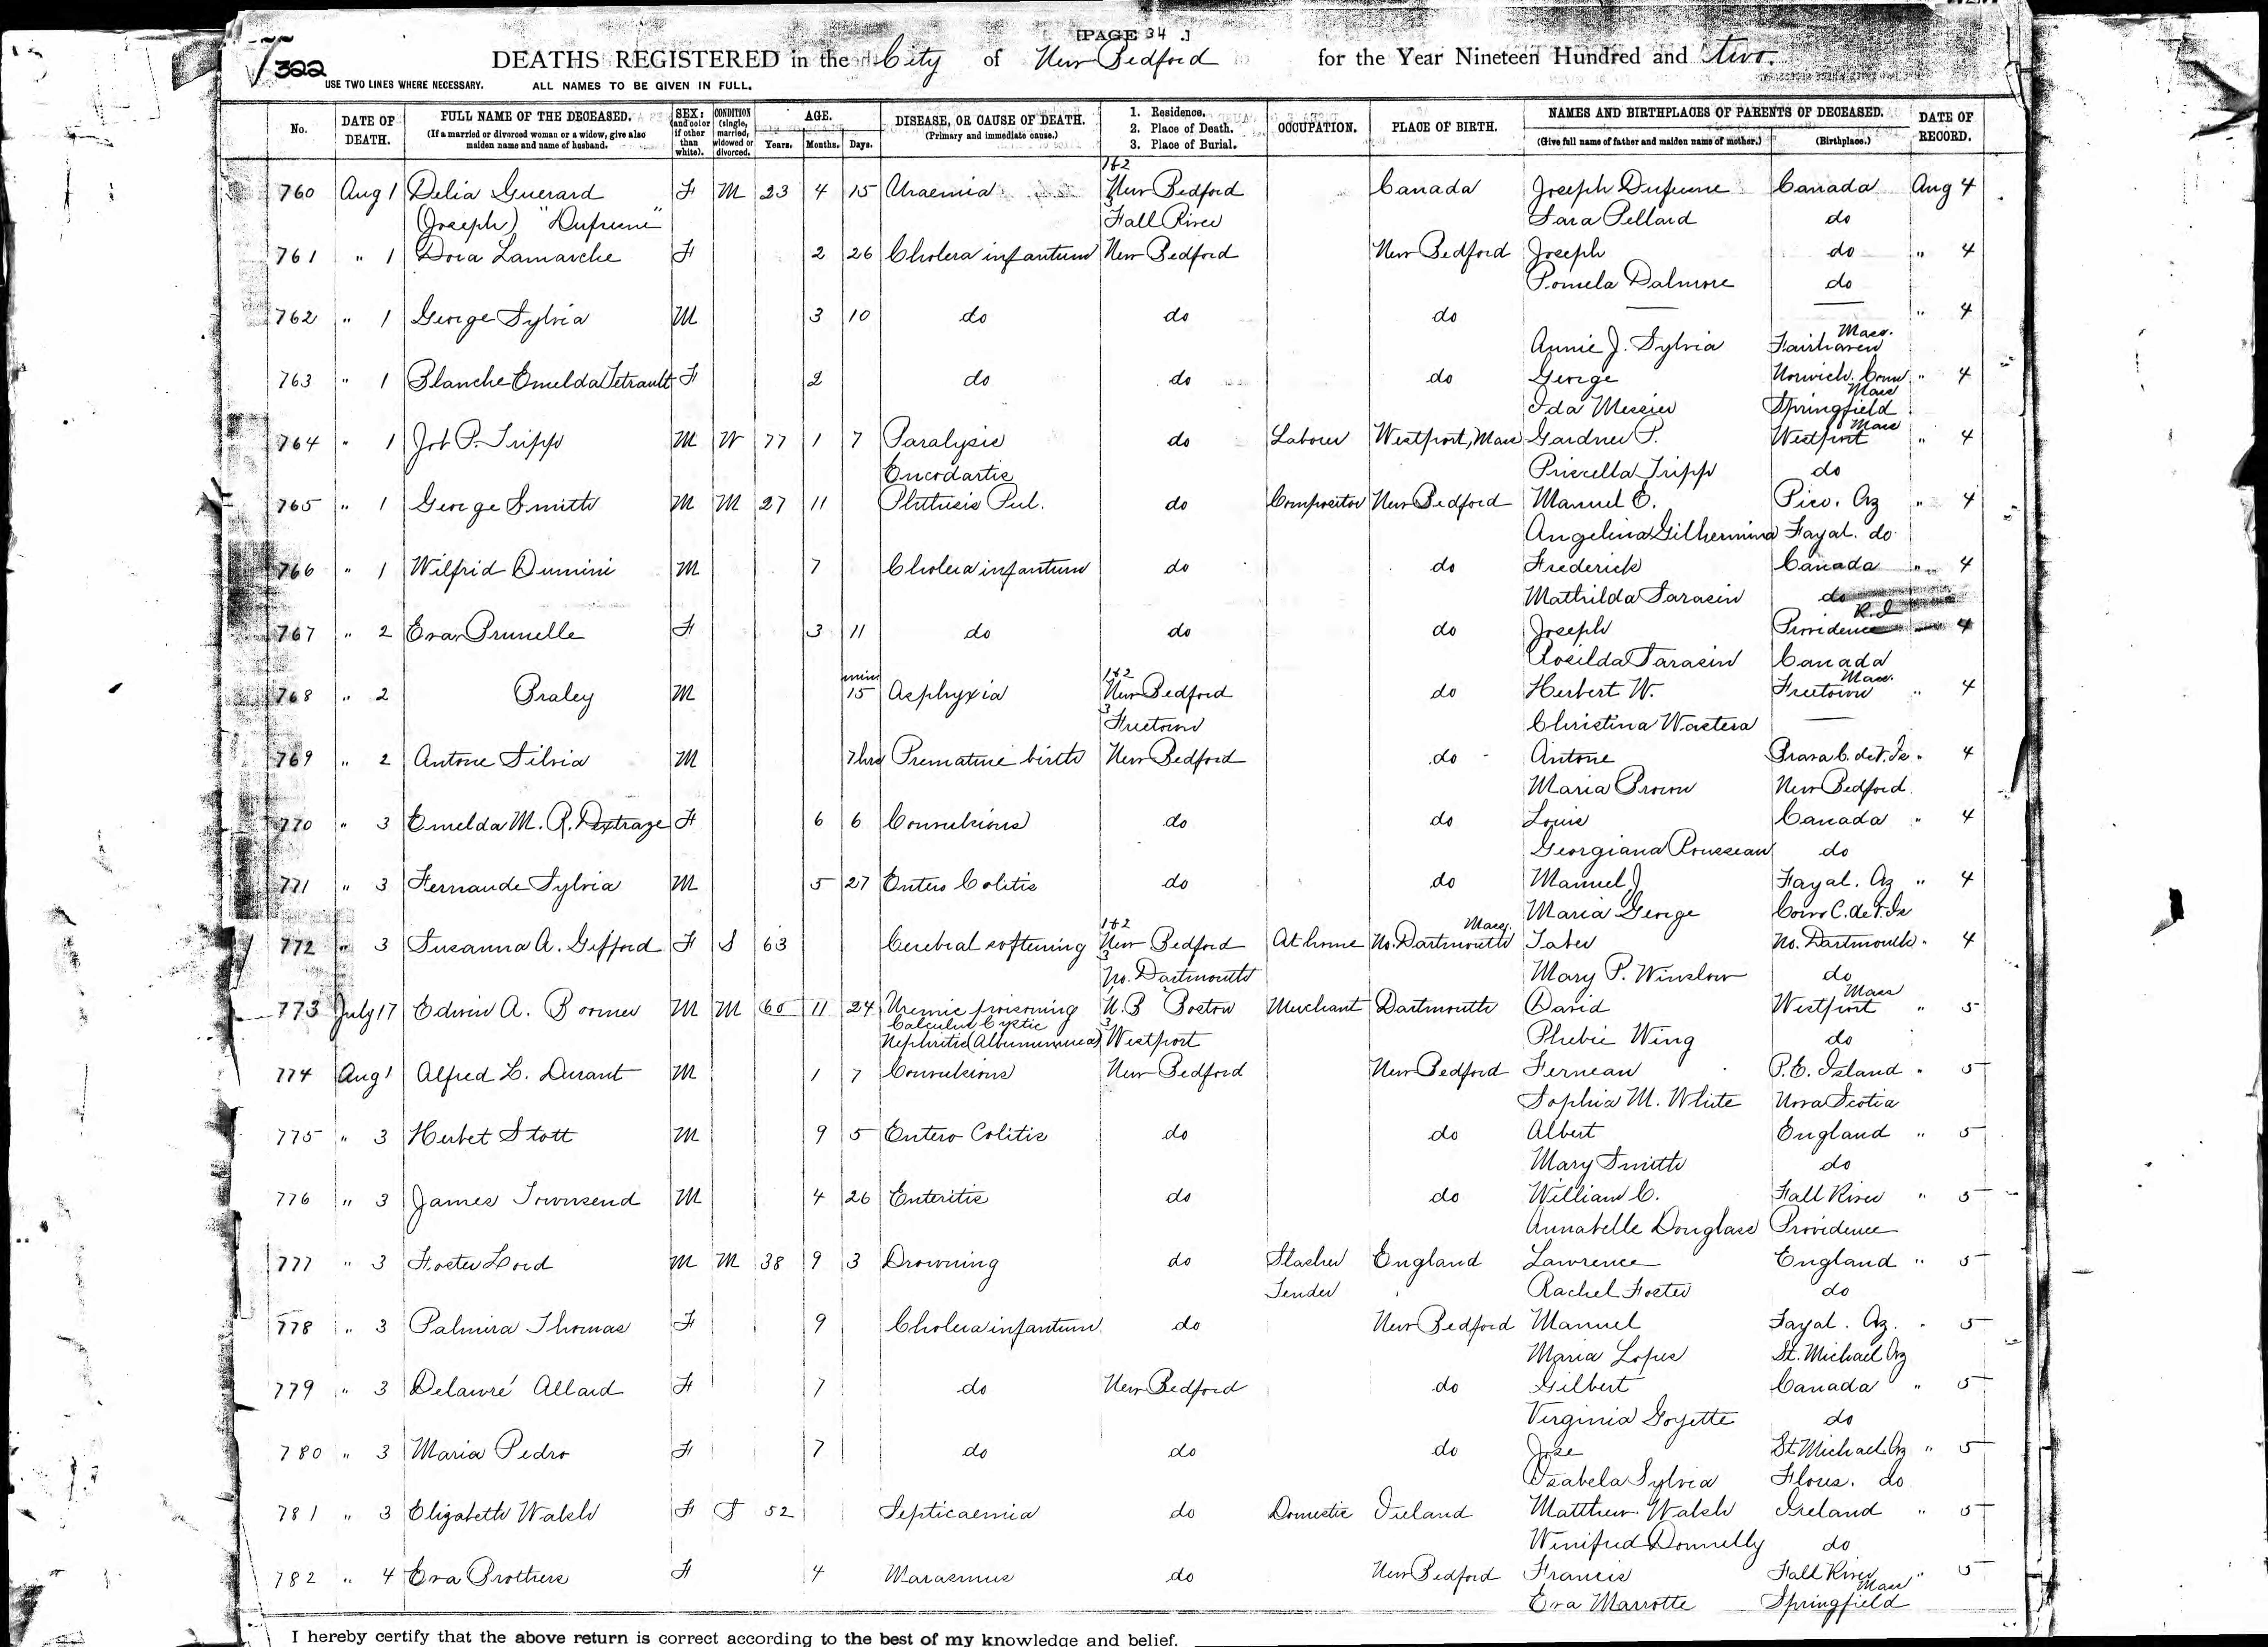 [PAGE 34 .]
322 DEATHS REGISTERED in the City of New Bedford for the Year Nineteen Hundred and two.
USE TWO LINES WHERE NECESSARY. ALL NAMES TO BE GIVEN IN FULL.
No. DATE OF DEATH. FULL NAME OF THE DECEASED. (If a married or divorced woman or a widow, give also maiden name and name of husband.) SEX: (and color if other than white). CONDITION (single, married, widowed or divorced. AGE. Years. Months. Days. DISEASE, OR CAUSE OF DEATH. (Primary and immediate cause.) 1. Residence. 2. Place of Death. 3. Place of Burial. OCCUPATION. PLACE OF BIRTH. NAMES AND BIRTHPLACES OF PARENTS OF DECEASED. (Give full name of father and maiden name of mother.) (Birthplace.) DATE OF RECORD.
1&2
760 Aug 1 Delia Guerard F M 23 4 15 Uraemia New Bedford Canada Joseph Dufresne Canada Aug 4
(Joseph) "Dufresne" 3 Fall River Sara Pellard do
761 " 1 Dora Lamarche F 2 26 Cholera infantum New Bedford New Bedford Joseph do " 4
Pomela Dalmore do
762 " 1 George Sylvia M 3 10 do do do — — " 4
Annie J. Sylvia Fairhaven Mass.
763 " 1 Blanche Emelda Tetrault F 2 do do do George Norwich. Conn " 4
Ida Messier Springfield Mass
764 " 1 Job P. Tripp M W 77 1 7 Paralysis do Laborer Westport, Mass Gardner P. Westport Mass " 4
Encodartis Priscella Tripp do
765 " 1 George Smith M M 27 11 Phthisis Pul. do Compositor New Bedford Manuel E. Pico. Az " 4
Angelina Gilhermina Fayal. do
766 " 1 Wilfrid Dumini M 7 Cholera infantum do do Frederick Canada " 4
Mathilda Sarasin do
767 " 2 Eva Prunelle F 3 11 do do do Joseph Providence R.I 4
Rosilda Sarasin Canada
768 " 2 Braley M 15 mins Asphyxia 1&2 New Bedford do Herbert W. Freetown Mass. " 4
3 Freetown Christina Wastera —
769 " 2 Antone Silvia M 7hrs Premature birth New Bedford do Antone Brava C. de V. Is " 4
Maria Brown New Bedford
770 " 3 Emelda M. R. Dextraze F 6 6 Convulsions do do Louis Canada " 4
Georgiana Rousseau do
771 " 3 Fernande Sylvia M 5 27 Entero Colitis do do Manuel J Fayal. Az " 4
Maria George Corvo C. de V. Is
772 " 3 Susanna A. Gifford F S 63 Cerebral softening 1&2 New Bedford At home No. Dartmouth Mass. Taber No. Dartmouth " 4
3 No. Dartmouth Mary P. Winslow do
773 July 17 Edwin A. Boomer M M 60 11 24 Uremic poisoning N.B 2 Boston Merchant Dartmouth David Westport Mass " 5
Calculus Cystic
Nephritis (Albuminurica) 3 Westport Phebie Wing do
774 Aug 1 Alfred L. Durant M 1 7 Convulsions New Bedford New Bedford Fernean P.E. Island " 5
Sophia M. White Nova Scotia
775 " 3 Herbet Stott M 9 5 Entero Colitis do do Albert England " 5
Mary Smith do
776 " 3 James Townsend M 4 26 Enteritis do do William C. Fall River " 5
Annabelle Douglass Providence
777 " 3 Foster Lord M M 38 9 3 Drowning do Slasher England Lawrence England " 5
Tender Rachel Foster do
778 " 3 Palmira Thomas F 9 Cholera infantum do New Bedford Manuel Fayal. Az. " 5
Maria Lopes St. Michael Az
779 " 3 Delauré Allard F 7 do New Bedford do Gilbert Canada " 5
Virginia Goyette do
780 " 3 Maria Pedro F 7 do do do Jose St. Michael Az " 5
Isabela Sylvia Flores. do
781 " 3 Elizabeth Walsh F S 52 Septicaemia do Domestic Ireland Matthew Walsh Ireland " 5
Winifred Donnelly do
782 " 4 Eva Brothers F 4 Marasmus do New Bedford Francis Fall River " 5
Eva Marrotte Springfield Mass
I hereby certify that the above return is correct according to the best of my knowledge and belief.